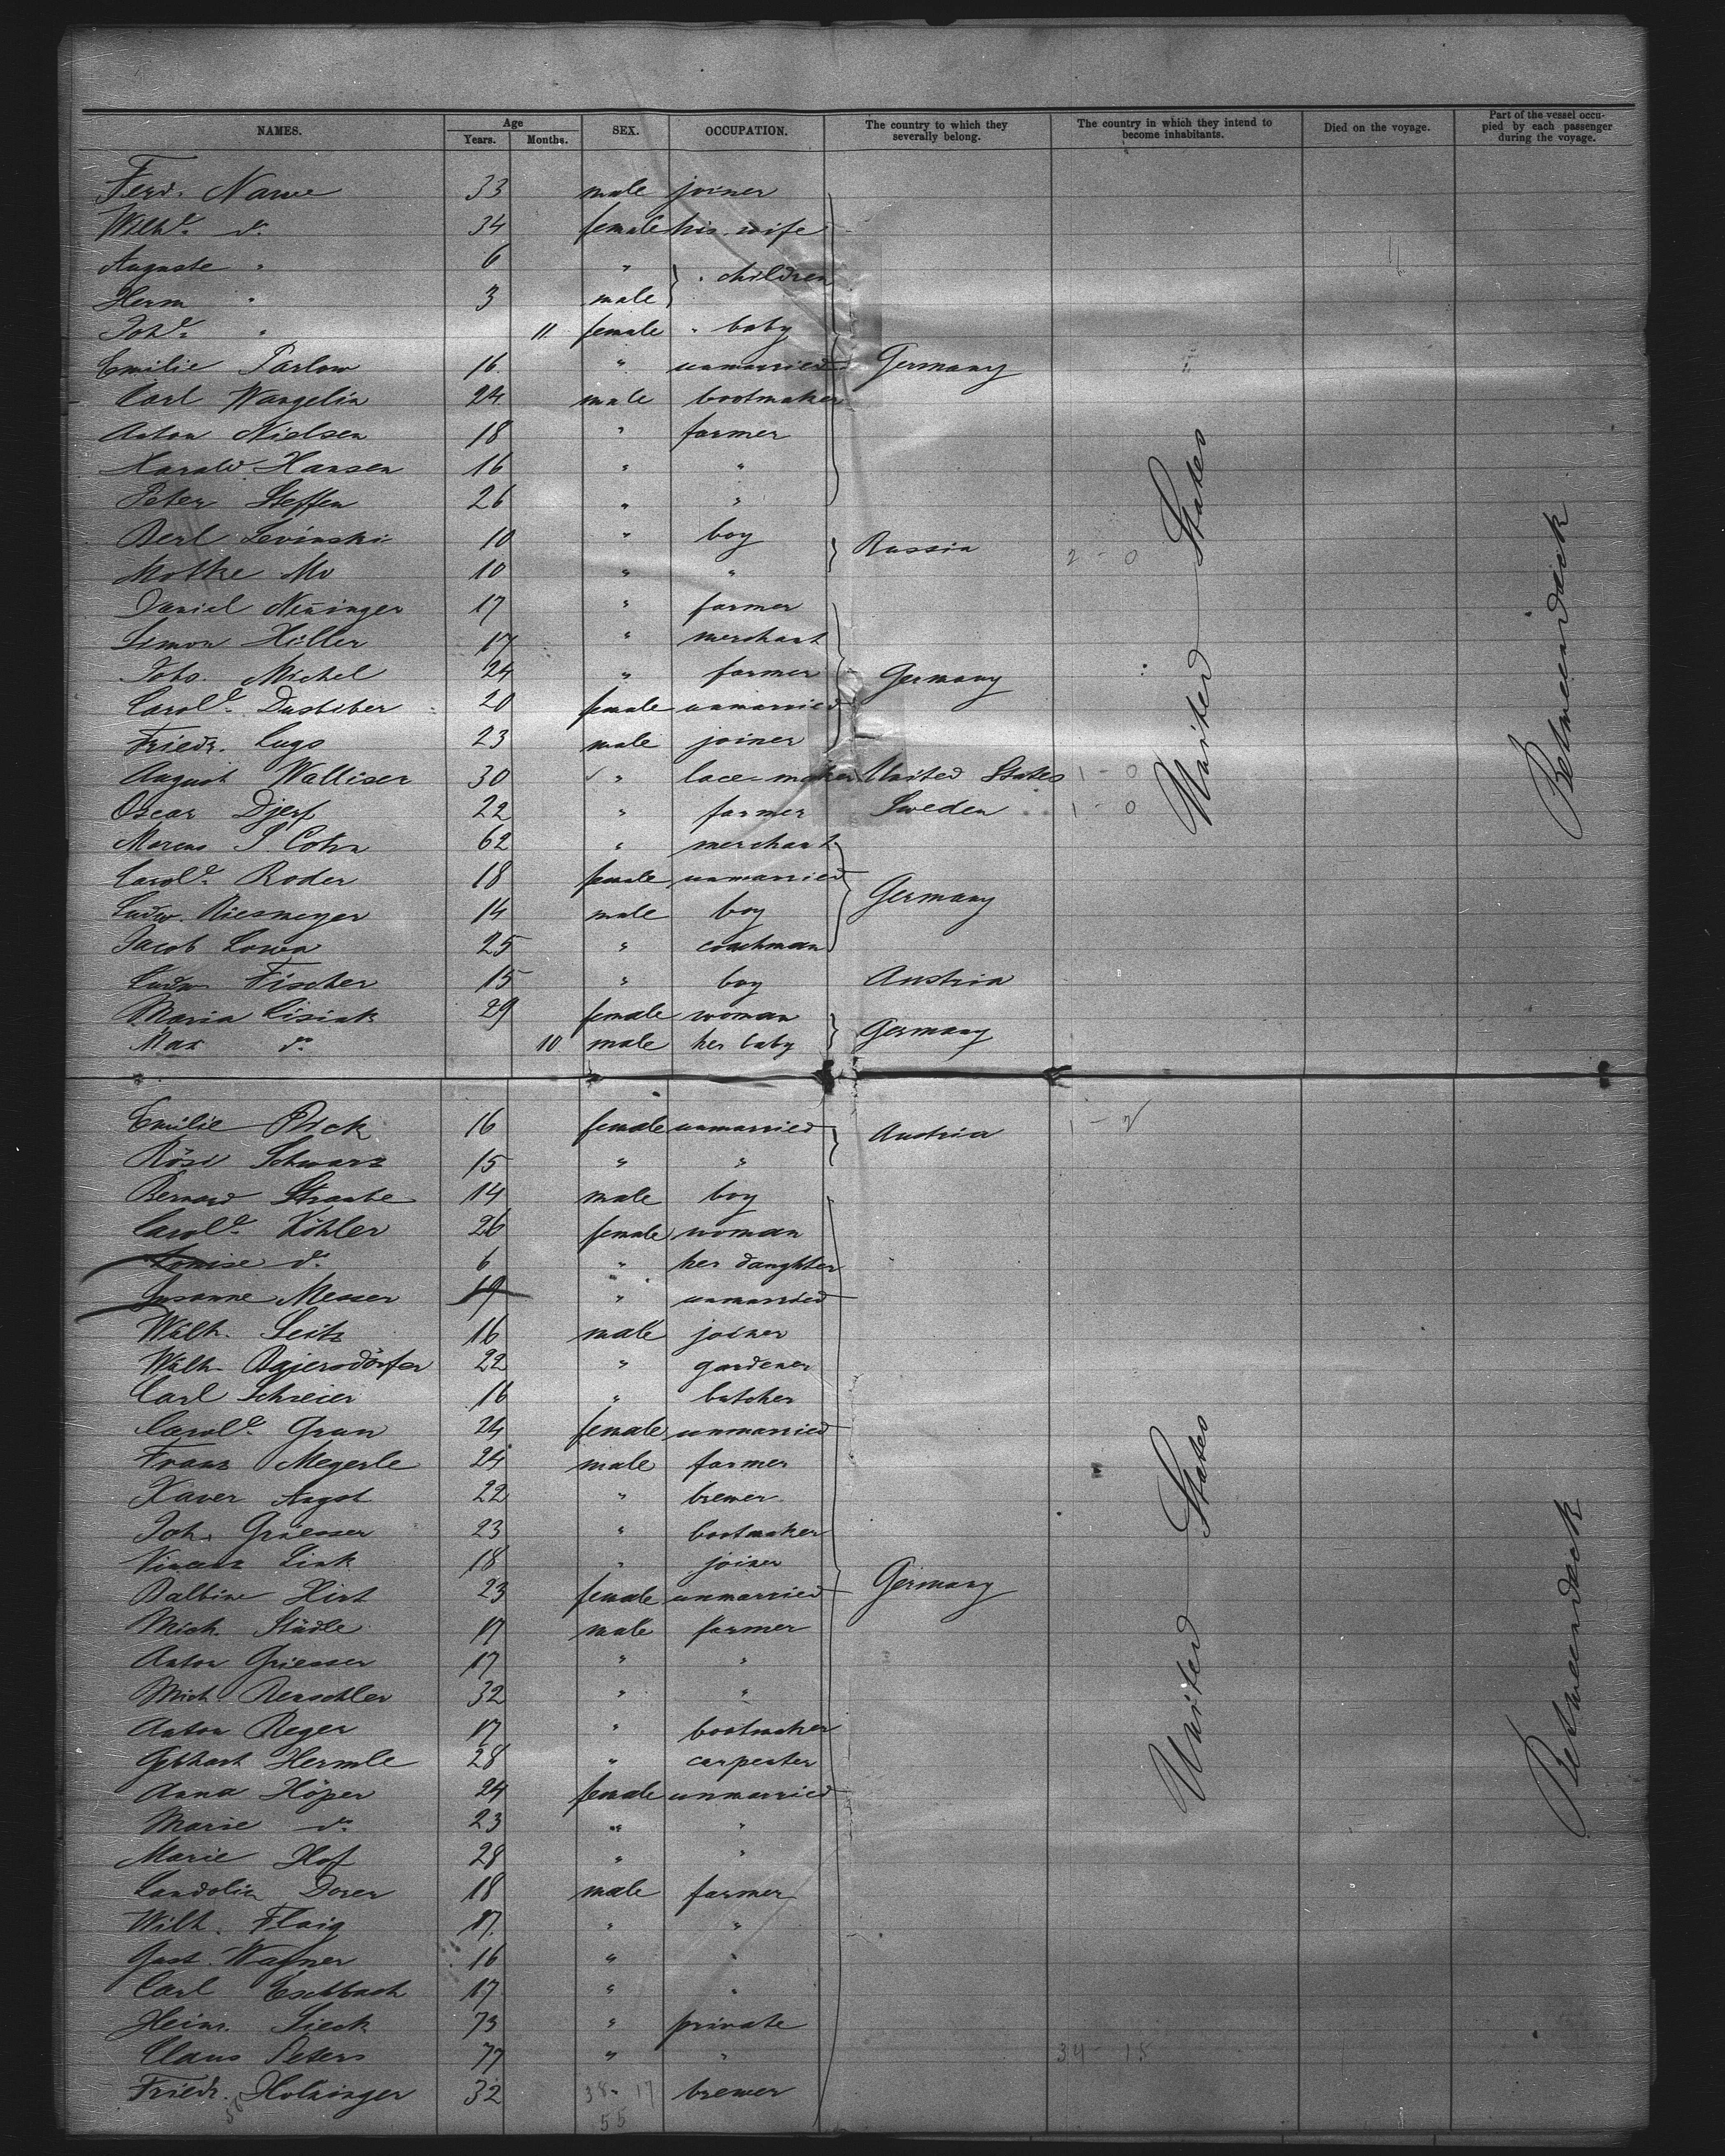 NAMES. Age Years. Months. SEX. OCCUPATION. The country to which they severally belong. The country in which they intend to become inhabitants. Died on the voyage. Part of the vessel occupied by each passenger during the voyage.
Ferd. Nawe 33 male joiner
Wilhe. do. 34 female his wife
Auguste " 6 " " children
Herm " 3 male
Johe. " 11 female " baby
Emilie Parlow 16 " unmarried Germany
Carl Wangelin 24 male bootmaker
Anton Nielsen 18 " farmer
Harald Hansen 16 " "
Peter Steffen 26 " "
Berl Levinski 10 " boy Russia 2 - 0
Motke Mo 10 " "
Daniel Neininger 17 " farmer
Simon Hiller 17 " merchant
Johs. Michel 24 " farmer Germany
Carole. Dustiber 20 female unmarried
Friedr. Lugo 23 male joiner
August Walliser 30 " lace-maker United States 1 - 0
Oscar Djerf 22 " farmer Sweden 1 - 0
Marcus S. Cohn 62 " merchant
Carole. Roder 18 female unmarried Germany
Ludw. Riesmeyer 14 male boy
Jacob Lowa 25 " coachman
Ludw Fischer 15 " boy Austria
Maria Lisiak 29 female woman Germany
Max do. 10 male her baby
United States
Betweendeck
Emilie Pick 16 female unmarried Austria 1 - 2
Rosi Schwarz 15 " "
Bernard Straube 14 male boy
Carole. Köhler 26 female woman
Louise do. 6 " her daughter
Susanne Messer 19 " unmarried
Wilh. Seitz 16 male joiner
Wilh. Baiersdörfer 22 " gardener
Carl Schreier 16 " butcher
Carole. Grau 24 female unmarried
Franz Megerle 24 male farmer
Xaver Angst 22 " brewer
Joh. Griesser 23 " bootmaker
Vincenz Link 18 " joiner
Balbine Hirt 23 female unmarried Germany
Mich. Städle 17 male farmer
Anton Griesser 17 " "
Mich Renschler 32 " "
Anton Reger 17 " bootmaker
Gebhart Hermle 28 " carpenter
Anna Höper 24 female unmarried
Marie do. 23 " "
Marie Hof 28 " "
Landolin Dorer 18 male farmer
Wilh. Flaig 17 " "
Gust. Wagner 16 " "
Carl Eschbach 17 " "
Heinr. Sieck 73 " private
Claus Peters 77 " " 34 - 15
Friedr. Holzinger 32 38 - 17 brewer
55
United States
Betweendeck